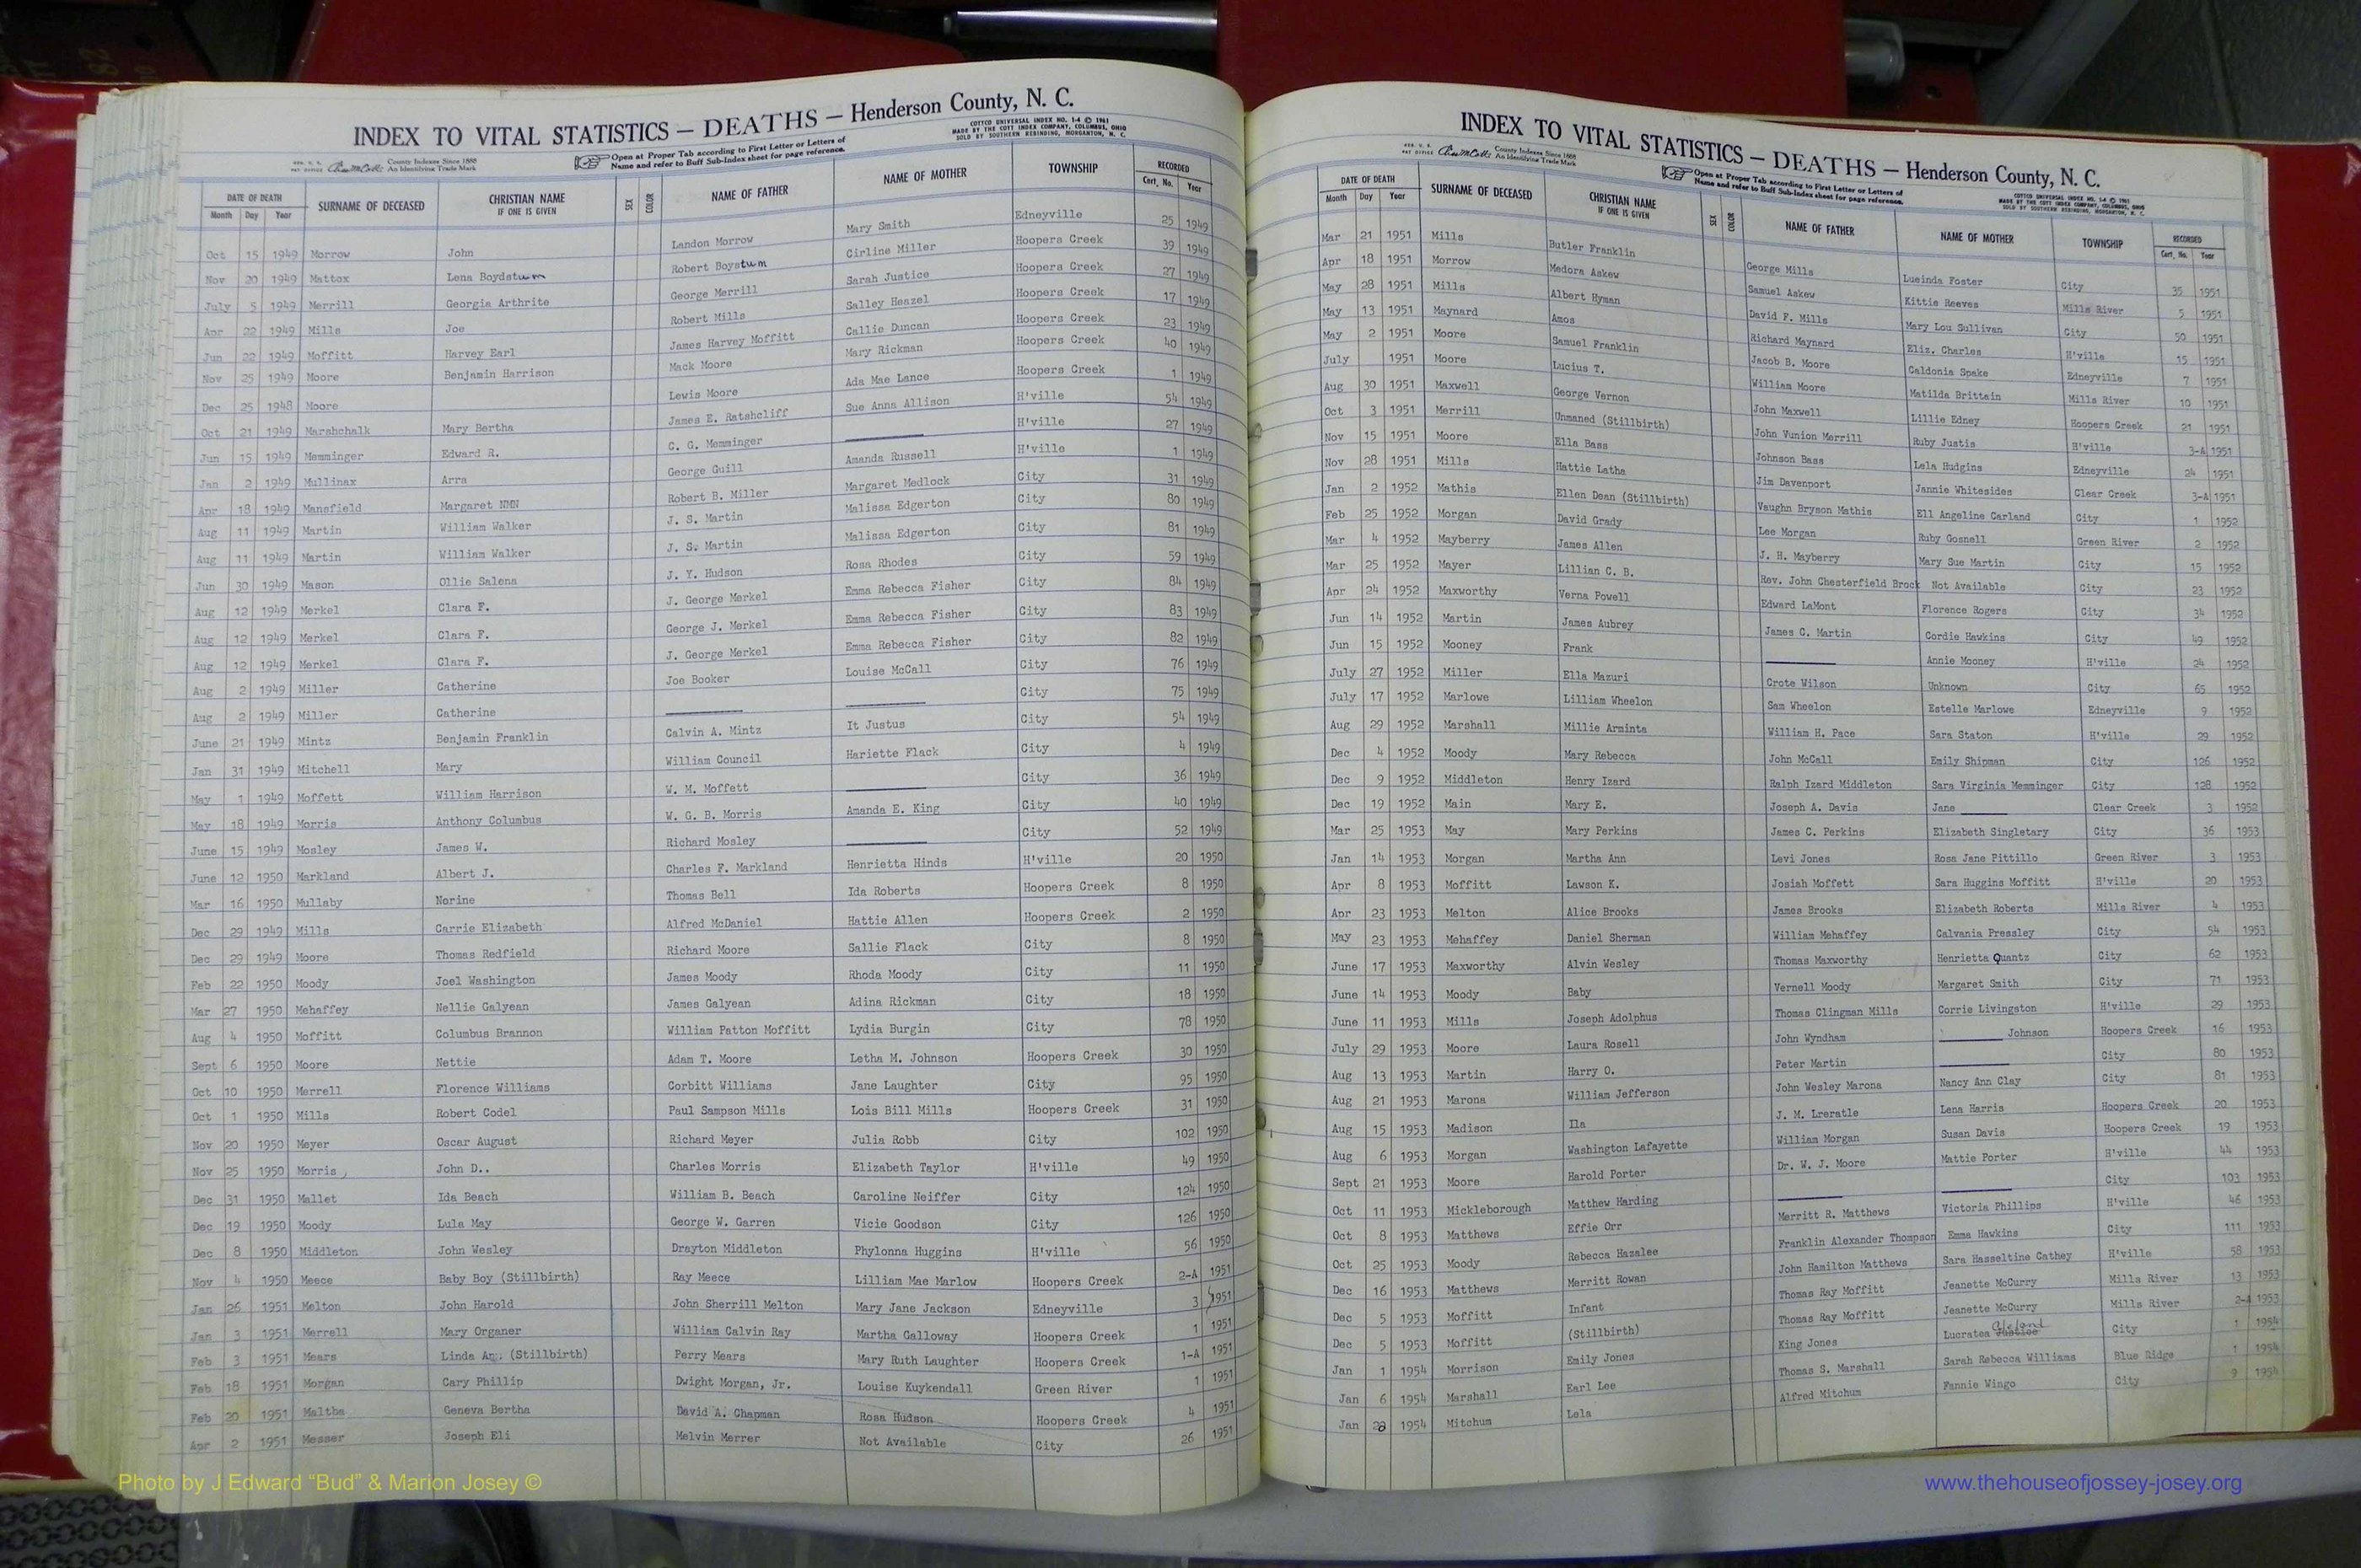 INDEX TO VITAL STATISTICS — DEATHS — Henderson County, N. C.
County Indexes Since 1888
An Identifying Trade Mark
Open at Proper Tab according to First Letter or Letters of
Name and refer to Buff Sub-Index sheet for page reference.
COTTCO UNIVERSAL INDEX NO. 1-4 © 1961
MADE BY THE COTT INDEX COMPANY, COLUMBUS, OHIO
SOLD BY SOUTHERN REBINDING, MORGANTON, N. C.
DATE OF DEATH SURNAME OF DECEASED CHRISTIAN NAME IF ONE IS GIVEN SEX COLOR NAME OF FATHER NAME OF MOTHER TOWNSHIP RECORDED
Month Day Year Cert. No. Year
Oct 15 1949 Morrow John Landon Morrow Mary Smith Edneyville 25 1949
Nov 20 1949 Mattox Lena Boydstum Robert Boystum Cirline Miller Hoopers Creek 39 1949
July 5 1949 Merrill Georgia Arthrite George Merrill Sarah Justice Hoopers Creek 27 1949
Apr 22 1949 Mills Joe Robert Mills Salley Heazel Hoopers Creek 17 1949
Jun 22 1949 Moffitt Harvey Earl James Harvey Moffitt Callie Duncan Hoopers Creek 23 1949
Nov 25 1949 Moore Benjamin Harrison Mack Moore Mary Rickman Hoopers Creek 40 1949
Dec 25 1948 Moore Lewis Moore Ada Mae Lance Hoopers Creek 1 1949
Oct 21 1949 Marshchalk Mary Bertha James E. Ratshcliff Sue Anna Allison H'ville 54 1949
Jun 15 1949 Memminger Edward R. C. G. Memminger H'ville 27 1949
Jan 2 1949 Mullinax Arra George Guill Amanda Russell H'ville 1 1949
Apr 18 1949 Mansfield Margaret NMN Robert B. Miller Margaret Medlock City 31 1949
Aug 11 1949 Martin William Walker J. S. Martin Malissa Edgerton City 80 1949
Aug 11 1949 Martin William Walker J. S. Martin Malissa Edgerton City 81 1949
Jun 30 1949 Mason Ollie Salena J. Y. Hudson Rosa Rhodes City 59 1949
Aug 12 1949 Merkel Clara F. J. George Merkel Emma Rebecca Fisher City 84 1949
Aug 12 1949 Merkel Clara F. George J. Merkel Emma Rebecca Fisher City 83 1949
Aug 12 1949 Merkel Clara F. J. George Merkel Emma Rebecca Fisher City 82 1949
Aug 2 1949 Miller Catherine Joe Booker Louise McCall City 76 1949
Aug 2 1949 Miller Catherine City 75 1949
June 21 1949 Mintz Benjamin Franklin Calvin A. Mintz It Justus City 54 1949
Jan 31 1949 Mitchell Mary William Council Hariette Flack City 4 1949
May 1 1949 Moffett William Harrison W. M. Moffett City 36 1949
May 18 1949 Morris Anthony Columbus W. G. B. Morris Amanda E. King City 40 1949
June 15 1949 Mosley James W. Richard Mosley City 52 1949
June 12 1950 Markland Albert J. Charles F. Markland Henrietta Hinds H'ville 20 1950
Mar 16 1950 Mullaby Norine Thomas Bell Ida Roberts Hoopers Creek 8 1950
Dec 29 1949 Mills Carrie Elizabeth Alfred McDaniel Hattie Allen Hoopers Creek 2 1950
Dec 29 1949 Moore Thomas Redfield Richard Moore Sallie Flack City 8 1950
Feb 22 1950 Moody Joel Washington James Moody Rhoda Moody City 11 1950
Mar 27 1950 Mehaffey Nellie Galyean James Galyean Adina Rickman City 18 1950
Aug 4 1950 Moffitt Columbus Brannon William Patton Moffitt Lydia Burgin City 78 1950
Sept 6 1950 Moore Nettie Adam T. Moore Letha M. Johnson Hoopers Creek 30 1950
Oct 10 1950 Merrell Florence Williams Corbitt Williams Jane Laughter City 95 1950
Oct 1 1950 Mills Robert Codel Paul Sampson Mills Lois Bill Mills Hoopers Creek 31 1950
Nov 20 1950 Meyer Oscar August Richard Meyer Julia Robb City 102 1950
Nov 25 1950 Morris John D.. Charles Morris Elizabeth Taylor H'ville 49 1950
Dec 31 1950 Mallet Ida Beach William B. Beach Caroline Neiffer City 124 1950
Dec 19 1950 Moody Lula May George W. Garren Vicie Goodson City 126 1950
Dec 8 1950 Middleton John Wesley Drayton Middleton Phylonna Huggins H'ville 56 1950
Nov 4 1950 Meece Baby Boy (Stillbirth) Ray Meece Lilliam Mae Marlow Hoopers Creek 2-A 1951
Jan 26 1951 Melton John Harold John Sherrill Melton Mary Jane Jackson Edneyville 3 1951
Jan 3 1951 Merrell Mary Organer William Calvin Ray Martha Galloway Hoopers Creek 1 1951
Feb 3 1951 Mears Linda An. (Stillbirth) Perry Mears Mary Ruth Laughter Hoopers Creek 1-A 1951
Feb 18 1951 Morgan Cary Phillip Dwight Morgan, Jr. Louise Kuykendall Green River 1 1951
Feb 20 1951 Maltba Geneva Bertha David A. Chapman Rosa Hudson Hoopers Creek 4 1951
Apr 2 1951 Messer Joseph Eli Melvin Merrer Not Available City 26 1951
INDEX TO VITAL STATISTICS — DEATHS — Henderson County, N. C.
County Indexes Since 1888
An Identifying Trade Mark
Open at Proper Tab according to First Letter or Letters of
Name and refer to Buff Sub-Index sheet for page reference.
COTTCO UNIVERSAL INDEX NO. 1-4 © 1961
MADE BY THE COTT INDEX COMPANY, COLUMBUS, OHIO
SOLD BY SOUTHERN REBINDING, MORGANTON, N. C.
DATE OF DEATH SURNAME OF DECEASED CHRISTIAN NAME IF ONE IS GIVEN SEX COLOR NAME OF FATHER NAME OF MOTHER TOWNSHIP RECORDED
Month Day Year Cert. No. Year
Mar 21 1951 Mills Butler Franklin George Mills Lueinda Foster City 35 1951
Apr 18 1951 Morrow Medora Askew Samuel Askew Kittie Reeves Mills River 5 1951
May 28 1951 Mills Albert Hyman David F. Mills Mary Lou Sullivan City 50 1951
May 13 1951 Maynard Amos Richard Maynard Eliz. Charles H'ville 15 1951
May 2 1951 Moore Samuel Franklin Jacob B. Moore Caldonia Spake Edneyville 7 1951
July 1951 Moore Lucius T. William Moore Matilda Brittain Mills River 10 1951
Aug 30 1951 Maxwell George Vernon John Maxwell Lillie Edney Hoopers Creek 21 1951
Oct 3 1951 Merrill Unmaned (Stillbirth) John Vunion Merrill Ruby Justis H'ville 3-A 1951
Nov 15 1951 Moore Ella Bass Johnson Bass Lela Hudgins Edneyville 24 1951
Nov 28 1951 Mills Hattie Latha Jim Davenport Jannie Whitesides Clear Creek 3-A 1951
Jan 2 1952 Mathis Ellen Dean (Stillbirth) Vaughn Bryson Mathis Ell Angeline Garland City 1 1952
Feb 25 1952 Morgan David Grady Lee Morgan Ruby Gosnell Green River 2 1952
Mar 4 1952 Mayberry James Allen J. H. Mayberry Mary Sue Martin City 15 1952
Mar 25 1952 Mayer Lillian C. B. Rev. John Chesterfield Brock Not Available City 23 1952
Apr 24 1952 Maxworthy Verna Powell Edward LaMont Florence Rogers City 34 1952
Jun 14 1952 Martin James Aubrey James C. Martin Cordie Hawkins City 49 1952
Jun 15 1952 Mooney Frank Annie Mooney H'ville 24 1952
July 27 1952 Miller Ella Mazuri Crote Wilson Unknown City 65 1952
July 17 1952 Marlowe Lilliam Wheelon Sam Wheelon Estelle Marlowe Edneyville 9 1952
Aug 29 1952 Marshall Millie Arminta William H. Pace Sara Staton H'ville 29 1952
Dec 4 1952 Moody Mary Rebecca John McCall Emily Shipman City 126 1952
Dec 9 1952 Middleton Henry Izard Ralph Izard Middleton Sara Virginia Memminger City 128 1952
Dec 19 1952 Main Mary E. Joseph A. Davis Jane Clear Creek 3 1952
Mar 25 1953 May Mary Perkins James C. Perkins Elizabeth Singletary City 36 1953
Jan 14 1953 Morgan Martha Ann Levi Jones Rosa Jane Pittillo Green River 3 1953
Apr 8 1953 Moffitt Lawson K. Josiah Moffett Sara Huggins Moffitt H'ville 20 1953
Apr 23 1953 Melton Alice Brooks James Brooks Elizabeth Roberts Mills River 4 1953
May 23 1953 Mehaffey Daniel Sherman William Mehaffey Calvania Pressley City 54 1953
June 17 1953 Maxworthy Alvin Wesley Thomas Maxworthy Henrietta Quantz City 62 1953
June 14 1953 Moody Baby Vernell Moody Margaret Smith City 71 1953
June 11 1953 Mills Joseph Adolphus Thomas Clingman Mills Corrie Livingston H'ville 29 1953
July 29 1953 Moore Laura Rosell John Wyndham Johnson Hoopers Creek 16 1953
Aug 13 1953 Martin Harry O. Peter Martin City 80 1953
Aug 21 1953 Marona William Jefferson John Wesley Marona Nancy Ann Clay City 81 1953
Aug 15 1953 Madison Ila J. M. Lreratle Lena Harris Hoopers Creek 20 1953
Aug 6 1953 Morgan Washington Lafayette William Morgan Susan Davis Hoopers Creek 19 1953
Sept 21 1953 Moore Harold Porter Dr. W. J. Moore Mattie Porter H'ville 44 1953
Oct 11 1953 Mickleborough Matthew Harding City 103 1953
Oct 8 1953 Matthews Effie Orr Merritt R. Matthews Victoria Phillips H'ville 46 1953
Oct 25 1953 Moody Rebecca Hazalee Franklin Alexander Thompson Emma Hawkins City 111 1953
Dec 16 1953 Matthews Merritt Rowan John Hamilton Matthews Sara Hasseltine Cathey H'ville 58 1953
Dec 5 1953 Moffitt Infant Thomas Ray Moffitt Jeanette McCurry Mills River 13 1953
Dec 5 1953 Moffitt (Stillbirth) Thomas Ray Moffitt Jeanette McCurry Mills River 2-A 1953
Jan 1 1954 Morrison Emily Jones King Jones Lucratea Justice City 1 1954
Jan 6 1954 Marshall Earl Lee Thomas S. Marshall Sarah Rebecca Williams Blue Ridge 1 1954
Jan 28 1954 Mitchum Lela Alfred Mitchum Fannie Wingo City 9 1954
Photo by J Edward “Bud” & Marion Josey ©
www.thehouseofjossey-josey.org